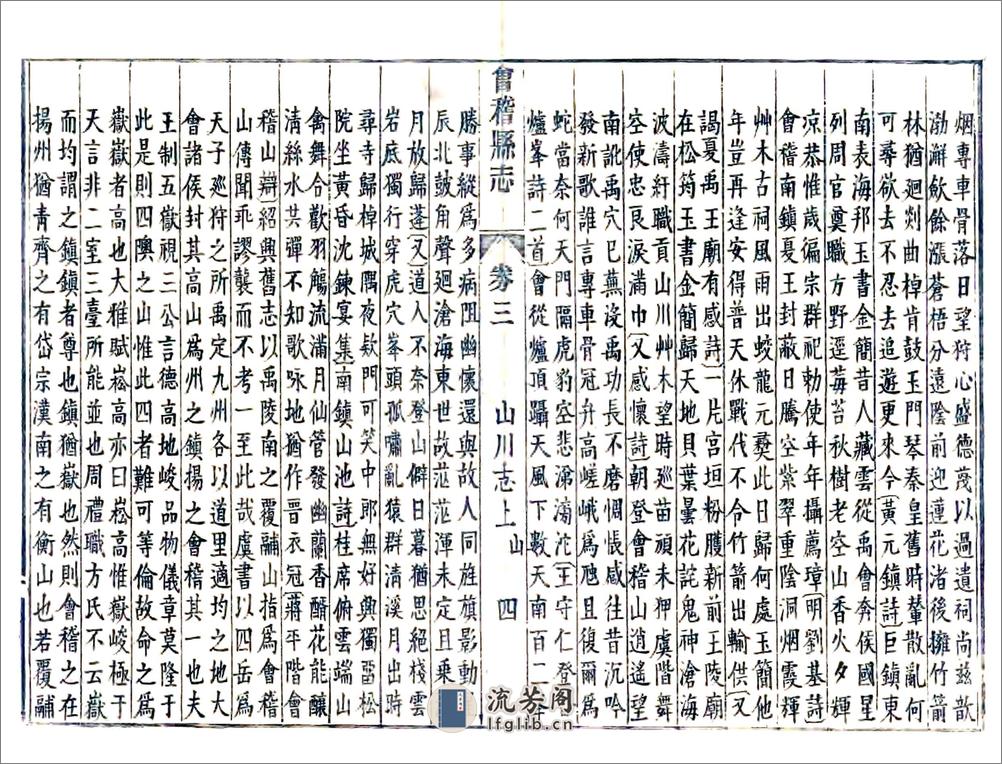 烟專車骨落日望狩心盛德茂以過遺祠尚茲歆
渤澥飲餘漲蒼梧分遠陰前迎蓮花渚後擁竹箭
林猶廻剡曲棹肯鼓玉門琴秦皇舊時輦散亂何
可尋欲去不忍去追遊更來今黃元鎮詩巨鎮東
南表海邦玉書金簡昔人藏雲從禹會奔侯國星
列周官奠職方野逕莓苔秋樹老空山香火夕輝
凉恭惟歲徧宗群祀勅使年年攝薦璋明劉基詩
會稽南鎮夏王封蔽日騰空紫翠重陰洞烟霞輝
艸木古祠風雨出蛟龍元夔此日歸何處玉簡他
年豈再逢安得普天休戰伐不令竹箭出輸供又
謁夏禹王廟有感詩一片宮垣粉雘新前王陵廟
在松筠玉書金簡歸天地貝葉曇花詫鬼神滄海
波濤紆職貢山川艸木望時巡苗頑未狎虞階舞
空使忠良淚滿巾又感詩朝登會稽山逍遙望
南訛禹穴已蕪沒禹功長不磨惆悵感往昔沉吟
發新歌誰言專車骨冠弁高嵯峨爲虺且復爾爲
蛇當奈何天門隔虎豹空悲涕滂沱王守仁登
爐峯詩二首會從爐頂躡天風下數天南百二峯
會稽縣志 卷三 山川志上 山 四
勝事縱爲多病阻幽懷還與故人同旌旗影動
辰北鼓角聲廻滄海東世故茫茫渾未定且乗
月放歸蓬又道人不奈登山僻日暮猶思絕棧雲
岩底獨行穿虎穴峯頭孤嘯亂猿群清溪月出時
尋寺歸棹城隅夜欸門可笑中郎無好興獨畱松
院坐黃昏沈鍊宴集南鎮山池詩桂席俯雲端山
禽舞令歡羽觴流滿月仙管發幽蘭香醑花能釀
淸絲水共彈不知歌咏地猶作晋衣冠蔣平階會
稽山辯紹興舊志以禹陵南之覆鬴山指爲會稽
山傳聞乖謬襲而不考一至此哉虞書以四岳爲
天子巡狩之所禹定九州各以道里適均之地大
會諸侯封其高山爲州之鎮揚之會稽其一也夫
王制五嶽視三公言德高地峻品物儀章莫隆于
此是則四隩之山惟此四者難可等倫故命之爲
嶽嶽者高也大雅賦崧高亦曰崧高惟嶽峻極于
天言非二室三臺所能並也周禮職方氏不云嶽
而均謂之鎮鎮者尊也鎮猶嶽也然則會稽之在
楊州猶青齊之有岱宗漢南之有衡山也若覆鬴
流芳阁
lfglib.cn